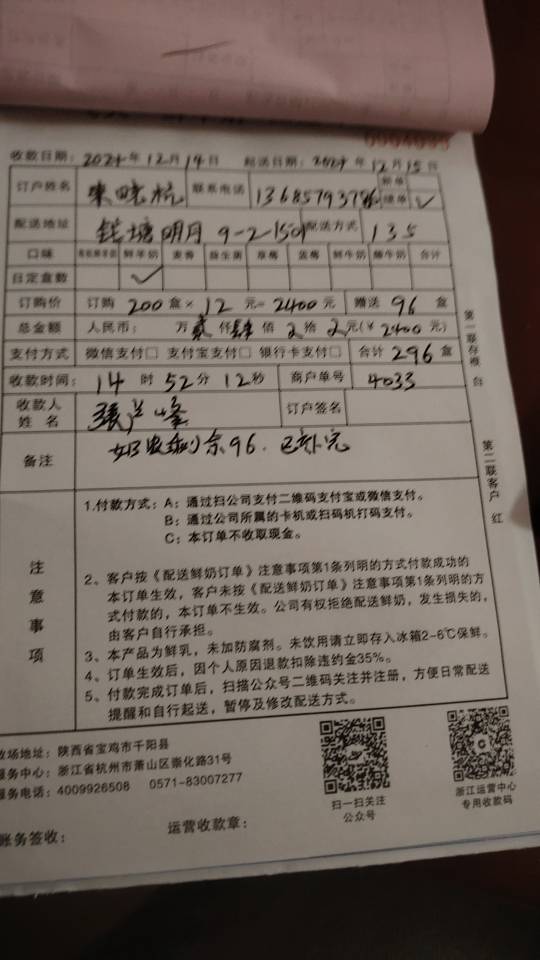 收款日期：2024年12月14日 起送日期：2024年12月15日
订户姓名 联系电话 续单 ✓
配送地址 钱塘明月 9-2-1501 配送方式 135
口味 鲜羊奶 麦香 益生菌 草莓 蓝莓 鲜牛奶 酸牛奶 合计
日定盒数 ✓
订购价 订购 200 盒× 12 元= 2400元 赠送 96 盒
总金额 人民币： 万贰仟肆佰 拾 元(￥2400元)
支付方式 微信支付□ 支付宝支付□ 银行卡支付□ 合计 296 盒
收款时间： 14 时 52 分 12 秒 商户单号 4033
收款人姓名 张 峰 订户签名
备注 余96. 已补完
第一联存根 台
第二联客户 红
注意事项
1.付款方式：A：通过扫公司支付二维码支付宝或微信支付。
B：通过公司所属的卡机或扫码机打码支付。
C：本订单不收取现金。
2、客户按《配送鲜奶订单》注意事项第1条列明的方式付款成功的
本订单生效，客户未按《配送鲜奶订单》注意事项第1条列明的方
式付款的，本订单不生效。公司有权拒绝配送鲜奶，发生损失的，
由客户自行承担。
3、本产品为鲜乳，未加防腐剂。未饮用请立即存入冰箱2-6℃保鲜。
4、订单生效后，因个人原因退款扣除违约金35%。
5、付款完成订单后，扫描公众号二维码关注并注册，方便日常配送
提醒和自行起送，暂停及修改配送方式。
牧场地址：陕西省宝鸡市千阳县
服务中心：浙江省杭州市萧山区崇化路31号
服务电话：4009926508 0571-83007277
扫一扫关注
公众号
浙江运营中心
专用收款码
账务签收： 运营收款章：